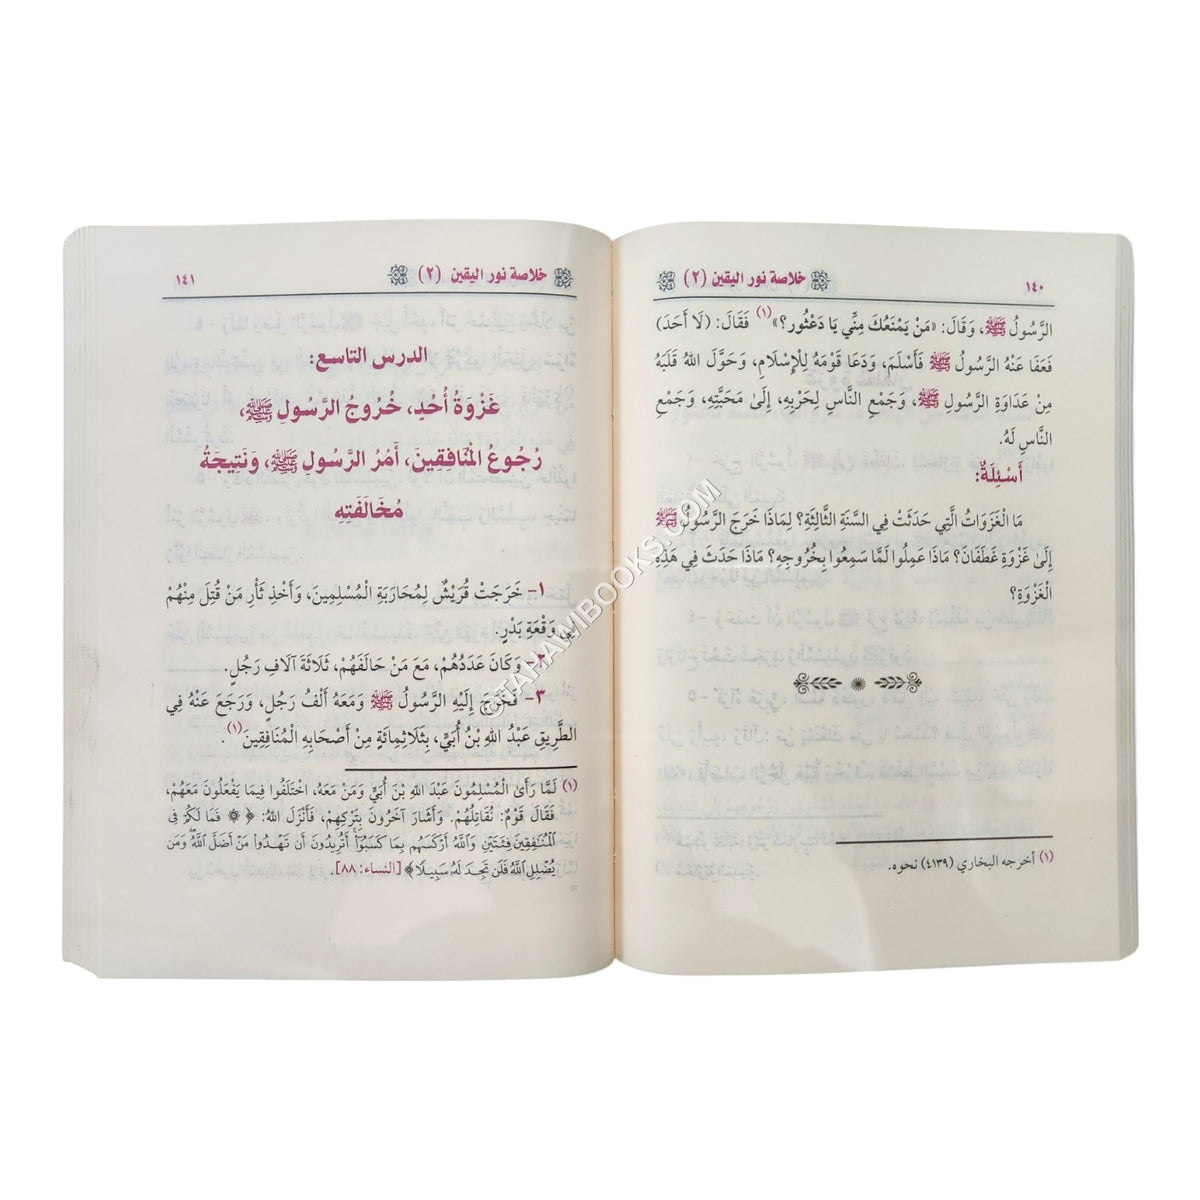 خلاصة نور اليقين (٢) ١٤٠
الرَّسُولُ ﷺ، وَقَالَ: «مَنْ يَمْنَعُكَ مِنِّي يَا دَعْثُور؟»(١) فَقَالَ: (لَا أَحَدَ)
فَعَفَا عَنْهُ الرَّسُولُ ﷺ فَأَسْلَمَ، وَدَعَا قَوْمَهُ لِلْإِسْلَامِ، وَحَوَّلَ اللهُ قَلْبَهُ
مِنْ عَدَاوَةِ الرَّسُولِ ﷺ، وَجَمْعِ النَّاسِ لِحَرْبِهِ، إِلَىٰ مَحَبَّتِهِ، وَجَمْعِ
النَّاسِ لَهُ.
أَسْئِلَةٌ:
مَا الْغَزَوَاتُ الَّتِي حَدَثَتْ فِي السَّنَةِ الثَّالِثَةِ؟ لِمَاذَا خَرَجَ الرَّسُولُ ﷺ
إِلَىٰ غَزْوَةِ غَطَفَانَ؟ مَاذَا عَمِلُوا لَمَّا سَمِعُوا بِخُرُوجِهِ؟ مَاذَا حَدَثَ فِي هَذِهِ
الْغَزْوَةِ؟
(١) أخرجه البخاري (٤١٣٩) نحوه.
خلاصة نور اليقين (٢) ١٤١
الدرس التاسع:
غَزْوَةُ أُحُدٍ، خُرُوجُ الرَّسُولِ ﷺ،
رُجُوعُ الْمُنَافِقِينَ، أَمْرُ الرَّسُولِ ﷺ، وَنَتِيجَةُ
مُخَالَفَتِهِ
١- خَرَجَتْ قُرَيْشٌ لِمُحَارَبَةِ الْمُسْلِمِينَ، وَأَخْذِ ثَأْرِ مَنْ قُتِلَ مِنْهُمْ
فِي وَقْعَةِ بَدْرٍ.
٢- وَكَانَ عَدَدُهُمْ، مَعَ مَنْ حَالَفَهُمْ، ثَلَاثَةَ آلَافِ رَجُلٍ.
٣- فَخَرَجَ إِلَيْهِ الرَّسُولُ ﷺ وَمَعَهُ أَلْفُ رَجُلٍ، وَرَجَعَ عَنْهُ فِي
الطَّرِيقِ عَبْدُ اللهِ بْنُ أُبَيٍّ، بِثَلَاثِمِائَةٍ مِنْ أَصْحَابِهِ الْمُنَافِقِينَ(١).
(١) لَمَّا رَأَىٰ الْمُسْلِمُونَ عَبْدَ اللهِ بْنَ أُبَيٍّ وَمَنْ مَعَهُ، اخْتَلَفُوا فِيمَا يَفْعَلُونَ مَعَهُمْ،
فَقَالَ قَوْمٌ: نُقَاتِلُهُمْ. وَأَشَارَ آخَرُونَ بِتَرْكِهِمْ، فَأَنْزَلَ اللهُ: ﴿ ۞ فَمَا لَكُمْ فِي
ٱلْمُنَٰفِقِينَ فِئَتَيْنِ وَٱللَّهُ أَرْكَسَهُم بِمَا كَسَبُوٓا۟ أَتُرِيدُونَ أَن تَهْدُوا۟ مَنْ أَضَلَّ ٱللَّهُ وَمَن
يُضْلِلِ ٱللَّهُ فَلَن تَجِدَ لَهُۥ سَبِيلًا﴾ [النساء: ٨٨].
©TAHAWIBOOKS.COM